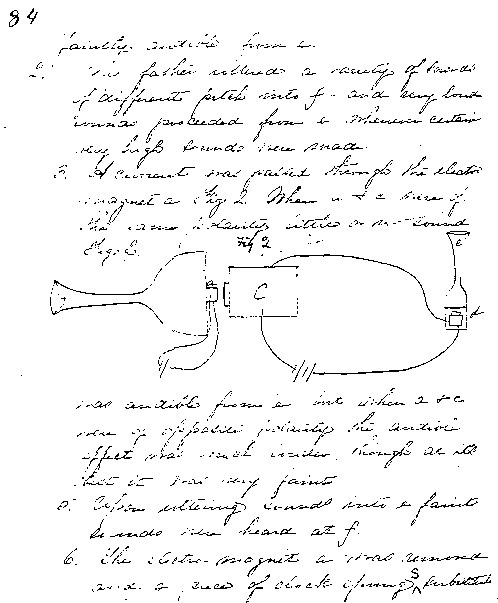 84
faintly audible from e.
2. My father uttered a variety of sounds
of different pitch into f - and very loud
sounds proceeded from e whenever certain
very high sounds were made.
3. A current was passed through the electro
magnet a Fig 2. When a & c were of
the same polarity little or no sound
Fig 2.
C
e
d
f
was audible from e but when a & c
were of opposite polarity the audible
effect was much louder though at its
best it was very faint
5. Upon uttering sounds into e faint
sounds were heard at f.
6. The electro-magnet a was removed
and a piece of clock spring S substituted